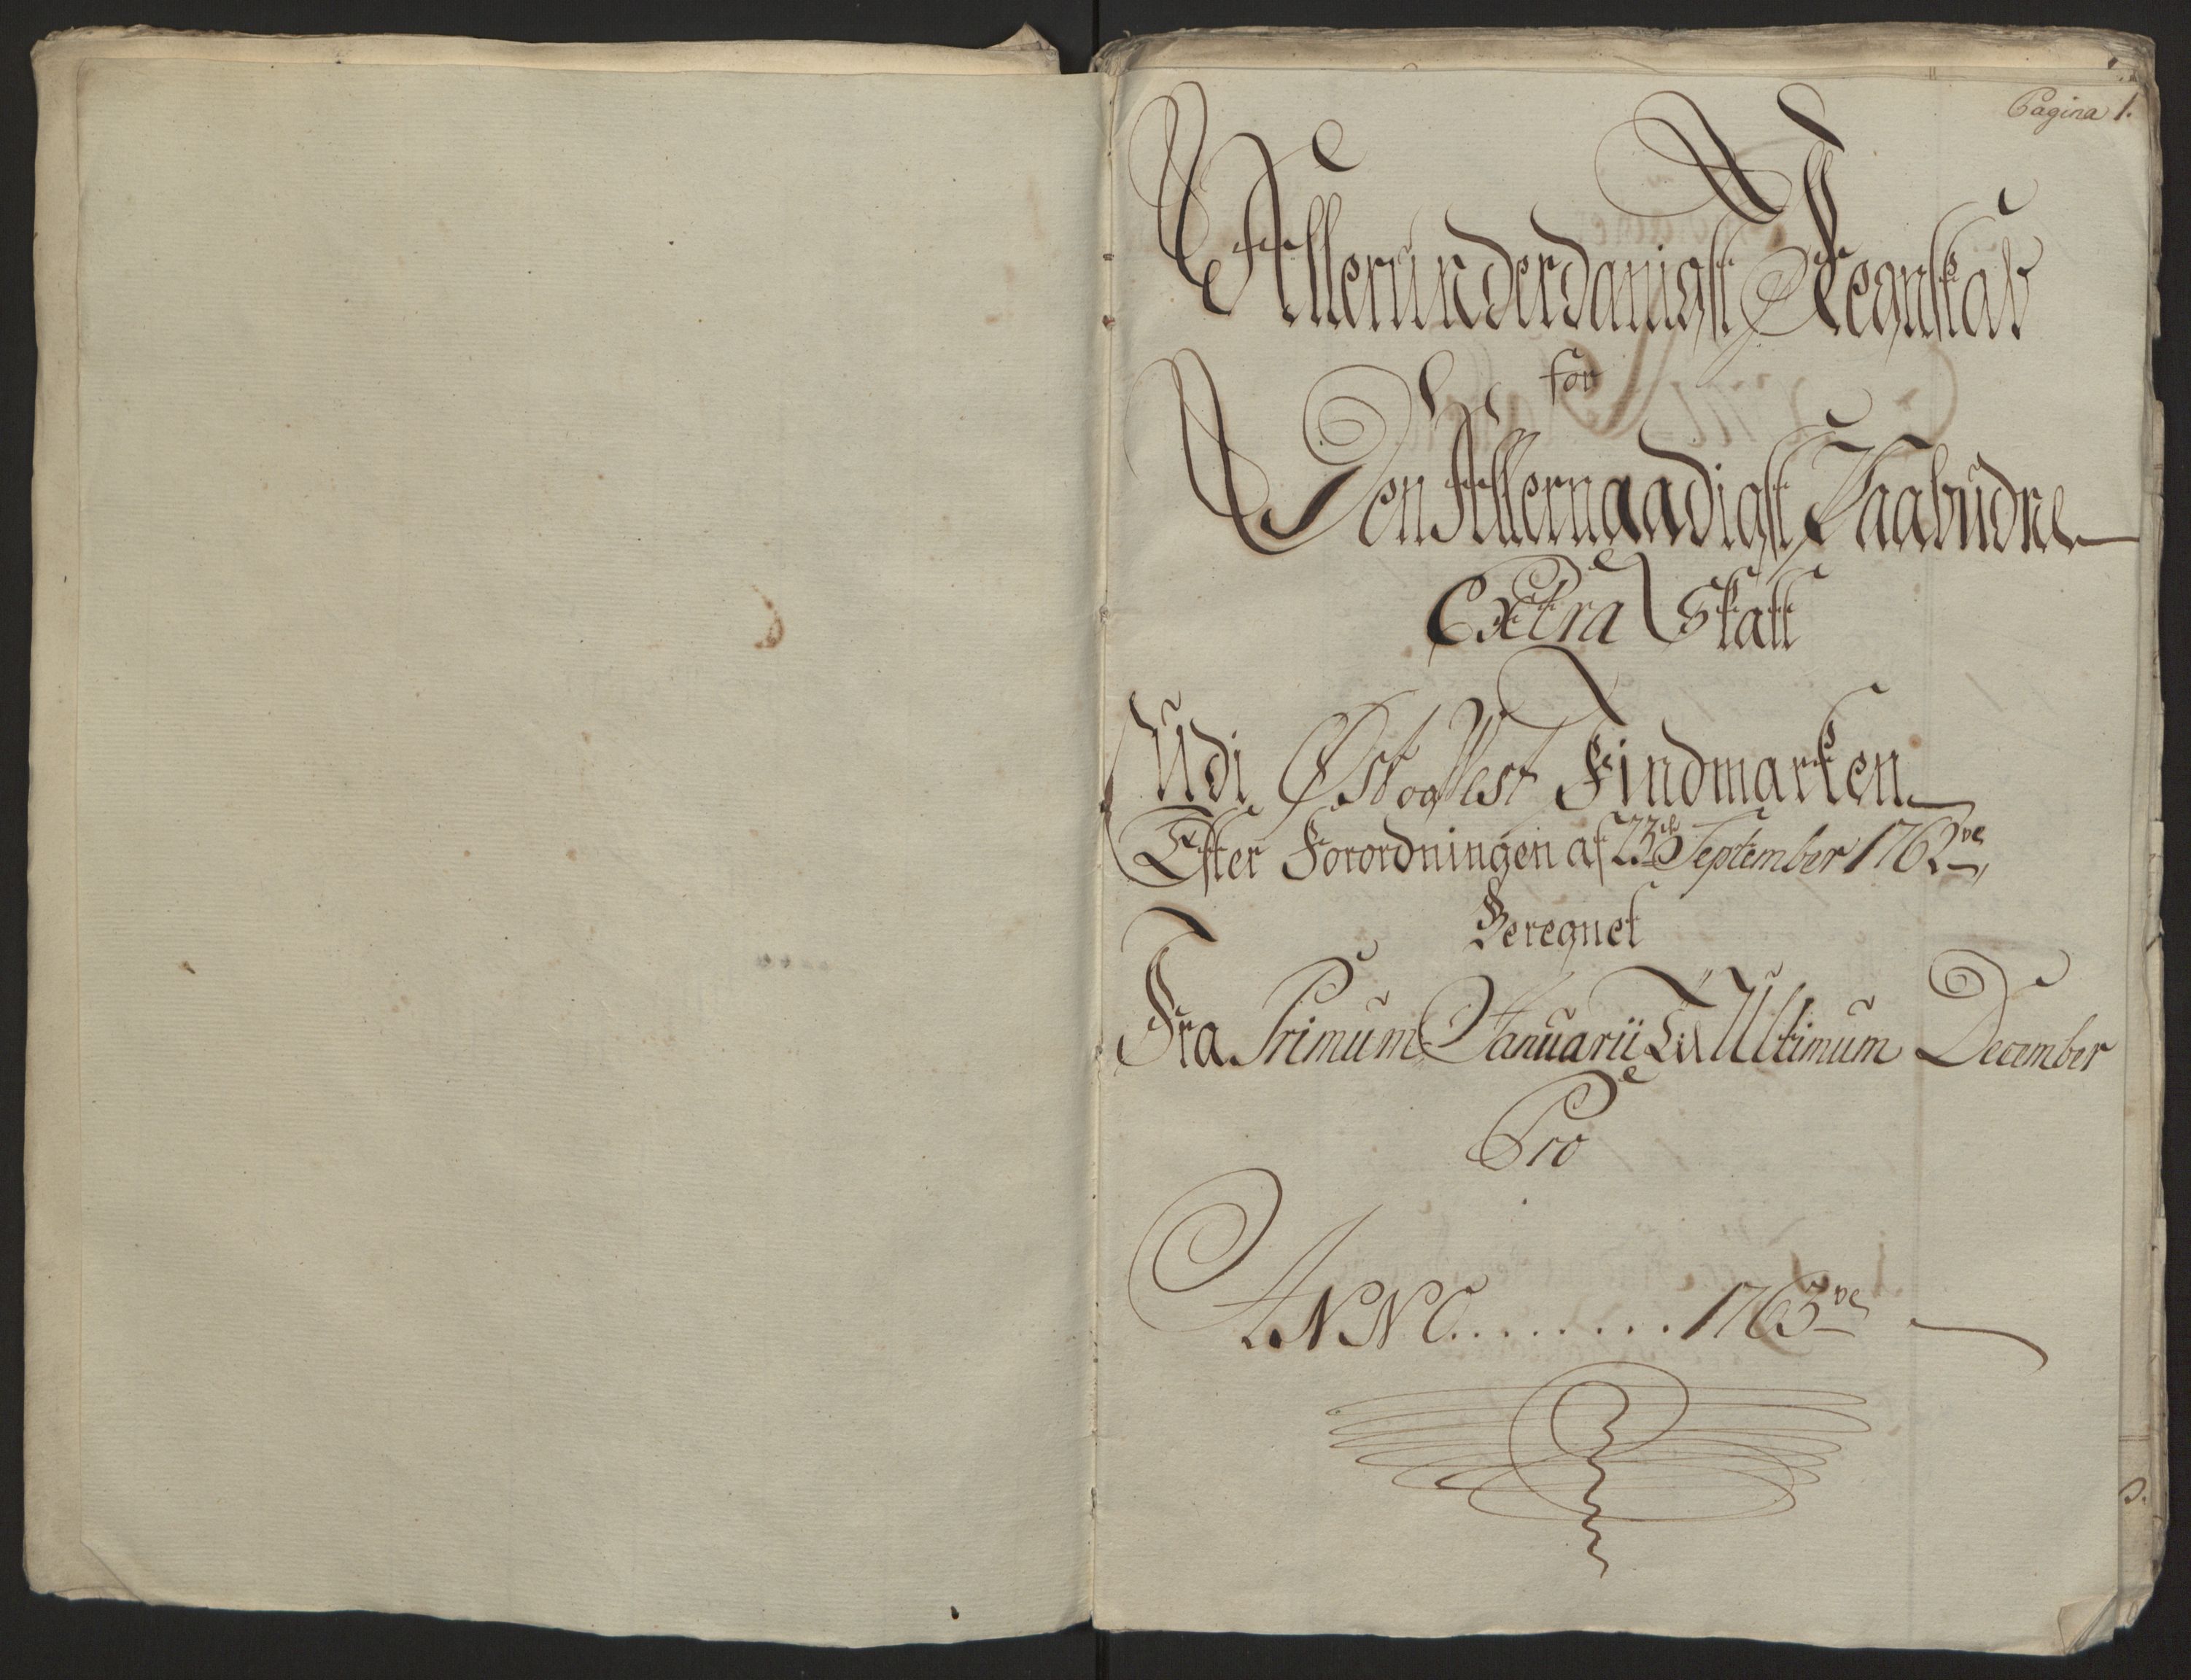 Pagina 1.
Allerunderdanigst Regnskab
for
Den Allernaadigst Paabudne
Extra Skatt
Udi Øst og West Findmarken
Efter Forordningen af 23de September 1762de
Beregnet
Fra Primum Januarii Til Ultimum December
Pro
ANNO........1763de